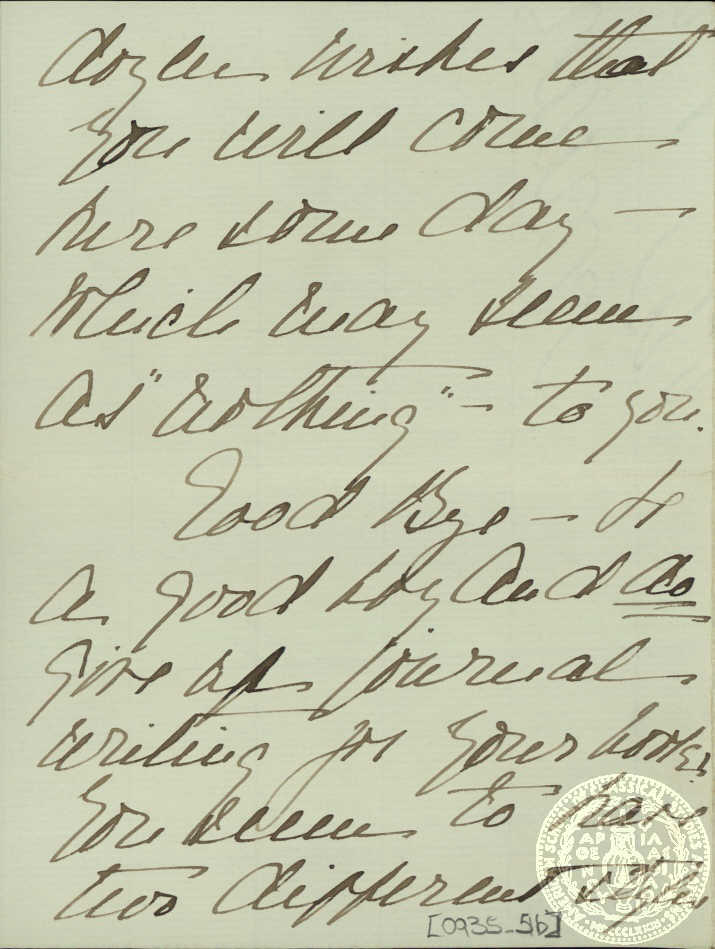 dozen wishes that
you will come
here some day —
Which may seem
as "nothing" — to you.
Good Bye — be
a good boy and do
give up journal
writing for your books,
You seem to have
two different styles
[0935_5b]